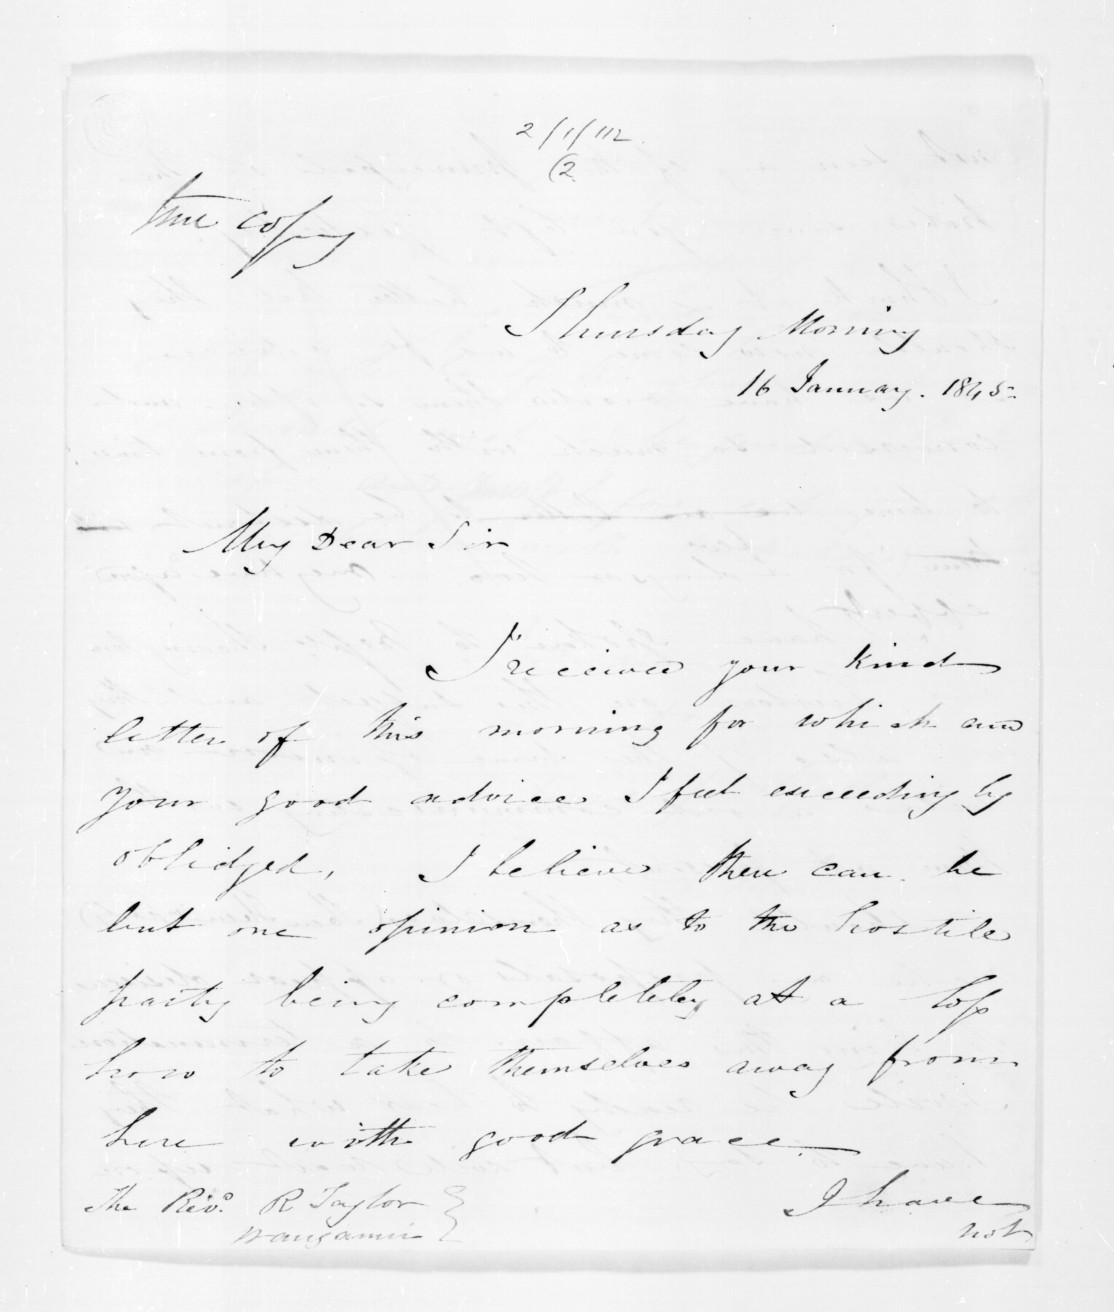 2/1/112.
(2
true copy
Thursday Morning
16 January. 1845=
My Dear Sir
I received your kind
letter of this morning for which and
your good advice I feel exceedingly
oblidged, I believe there can be
but one opinion as to the hostile
party being completely at a loss
how to take themselves away from
here with good grace
I have
not
The Revd. R Taylor
Wanganui